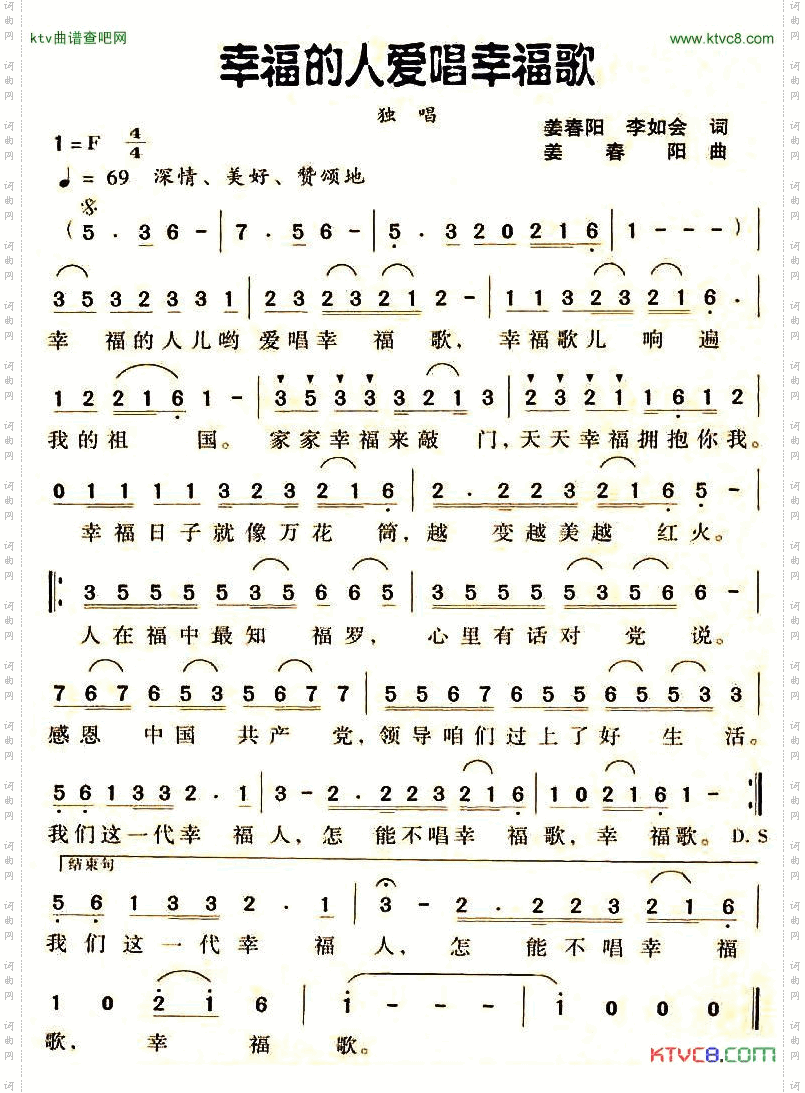 ktv曲谱查吧网
www.ktvc8.com
幸福的人爱唱幸福歌
独唱
姜春阳 李如会 词
1=F 4/4
姜春阳 曲
♩=69 深情、美好、赞颂地
(5·36-|7·56-|5·320216|1---)|
353232331|2323212-|113232216·|
幸福的人儿哟爱唱幸福歌,幸福歌儿响遍
122161-|35333213|2321 1612|
我的祖国。家家幸福来敲门,天天幸福拥抱你我。
0111323323216|2·223232165-|
幸福日子就像万花筒,越变越美越红火。
3555535665665|3555535365-|
人在福中最知福罗,心里有话对党说。
7676535677|5567655655533|
感恩中国共产党,领导咱们过上了好生活。
561332·1|3-2·223216|102161-|
我们这一代幸福人,怎能不唱幸福歌,幸福歌。D.S
结束句
561332·1|3-2·223216|
我们这一代幸福人,怎能不唱幸福
10216|1---|1000|
歌,幸福歌。
KTVC8.COM